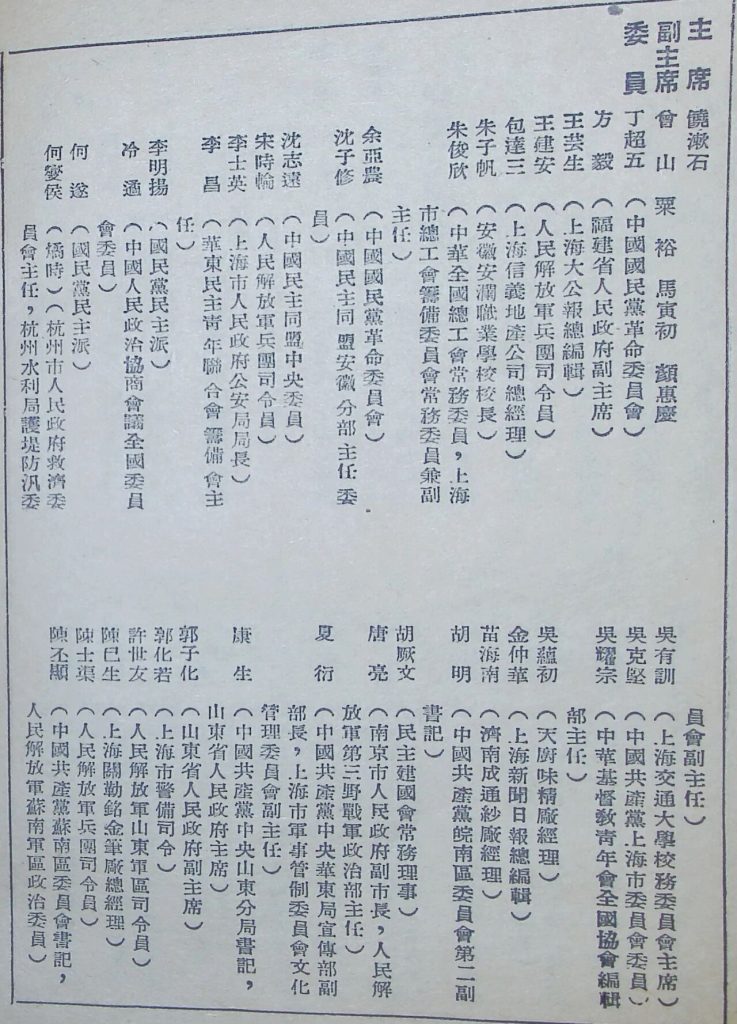 主席 饒漱石
副主席 曾山 粟裕 馬寅初 顏惠慶
委員 丁超五（中國國民黨革命委員會）
方毅（福建省人民政府副主席）
王芸生（上海大公報總編輯）
王建安（人民解放軍兵團司令員）
包達三（上海信義地產公司總經理）
朱子帆（安徽安瀾職業學校校長）
朱俊欣（中華全國總工會常務委員，上海
市總工會籌備委員會常務委員兼副
主任）
余亞農（中國國民黨革命委員會）
沈子修（中國民主同盟安徽分部主任委
員）
沈志遠（中國民主同盟中央委員）
宋時輪（人民解放軍兵團司令員）
李士英（上海市人民政府公安局局長）
李昌（華東民主青年聯合會籌備會主
任）
李明揚（國民黨民主派）
冷遹（中國人民政治協商會議全國委員
會委員）
何遂（國民黨民主派）
何燮侯（橘時）（杭州市人民政府救濟委
員會主任，杭州水利局護堤防汛委
員會副主任）
吳有訓（上海交通大學校務委員會主席）
吳克堅（中國共產黨上海市委員會委員）
吳耀宗（中華基督教青年會全國協會編輯
部主任）
吳蘊初（天廚味精廠經理）
金仲華（上海新聞日報總編輯）
苗海南（濟南成通紗廠經理）
胡明（中國共產黨皖南區委員會第二副
書記）
胡厥文（民主建國會常務理事）
唐亮（南京市人民政府副市長，人民解
放軍第三野戰軍政治部主任）
夏衍（中國共產黨中央華東局宣傳部副
部長，上海市軍事管制委員會文化
管理委員會副主任）
康生（中國共產黨中央山東分局書記，
山東省人民政府主席）
郭子化（山東省人民政府副主席）
郭化若（上海市警備司令）
許世友（人民解放軍山東軍區司令員）
陳巳生（上海關勒銘金筆廠總經理）
陳士榘（人民解放軍兵團司令員）
陳丕顯（中國共產黨蘇南區委員會書記，
人民解放軍蘇南軍區政治委員）